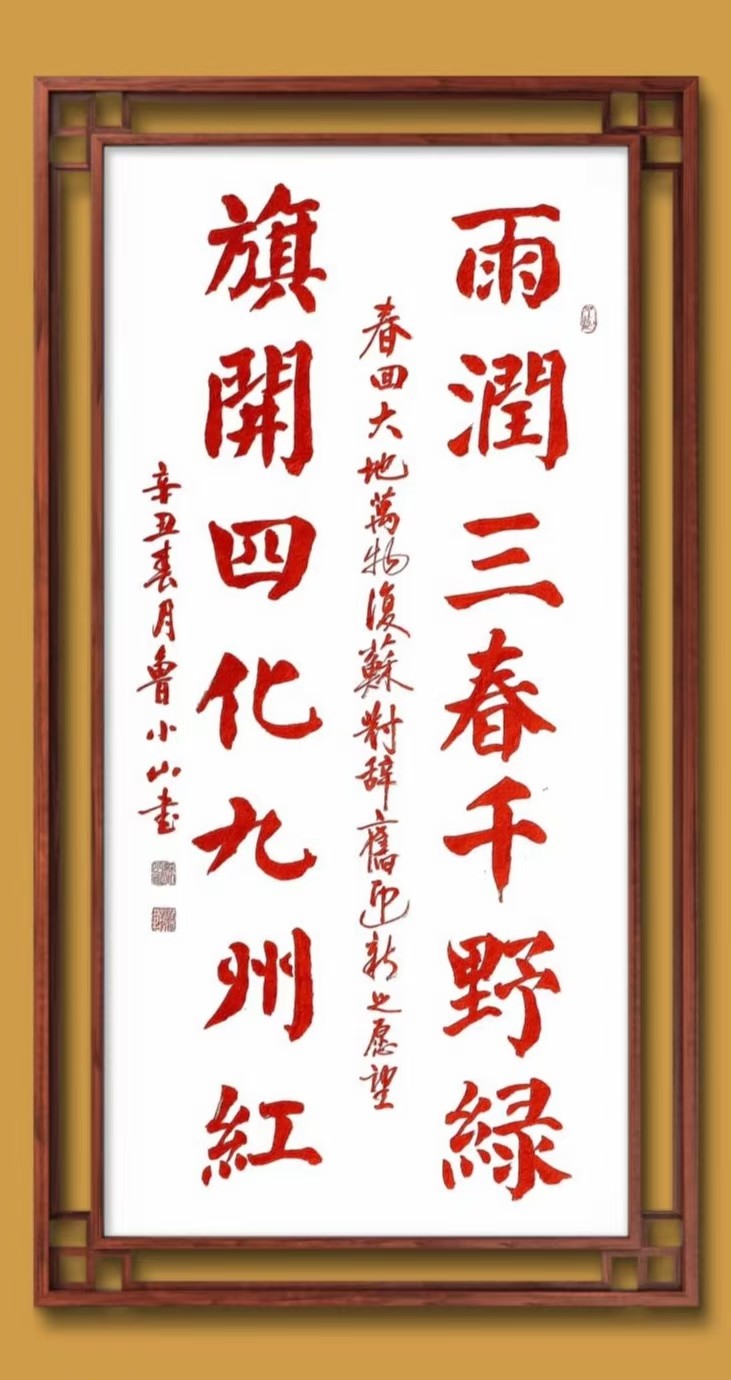 雨潤三春千野緑
春回大地萬物復蘇對辞舊迎新之愿望
旗開四化九州紅
辛丑春月魯小山書